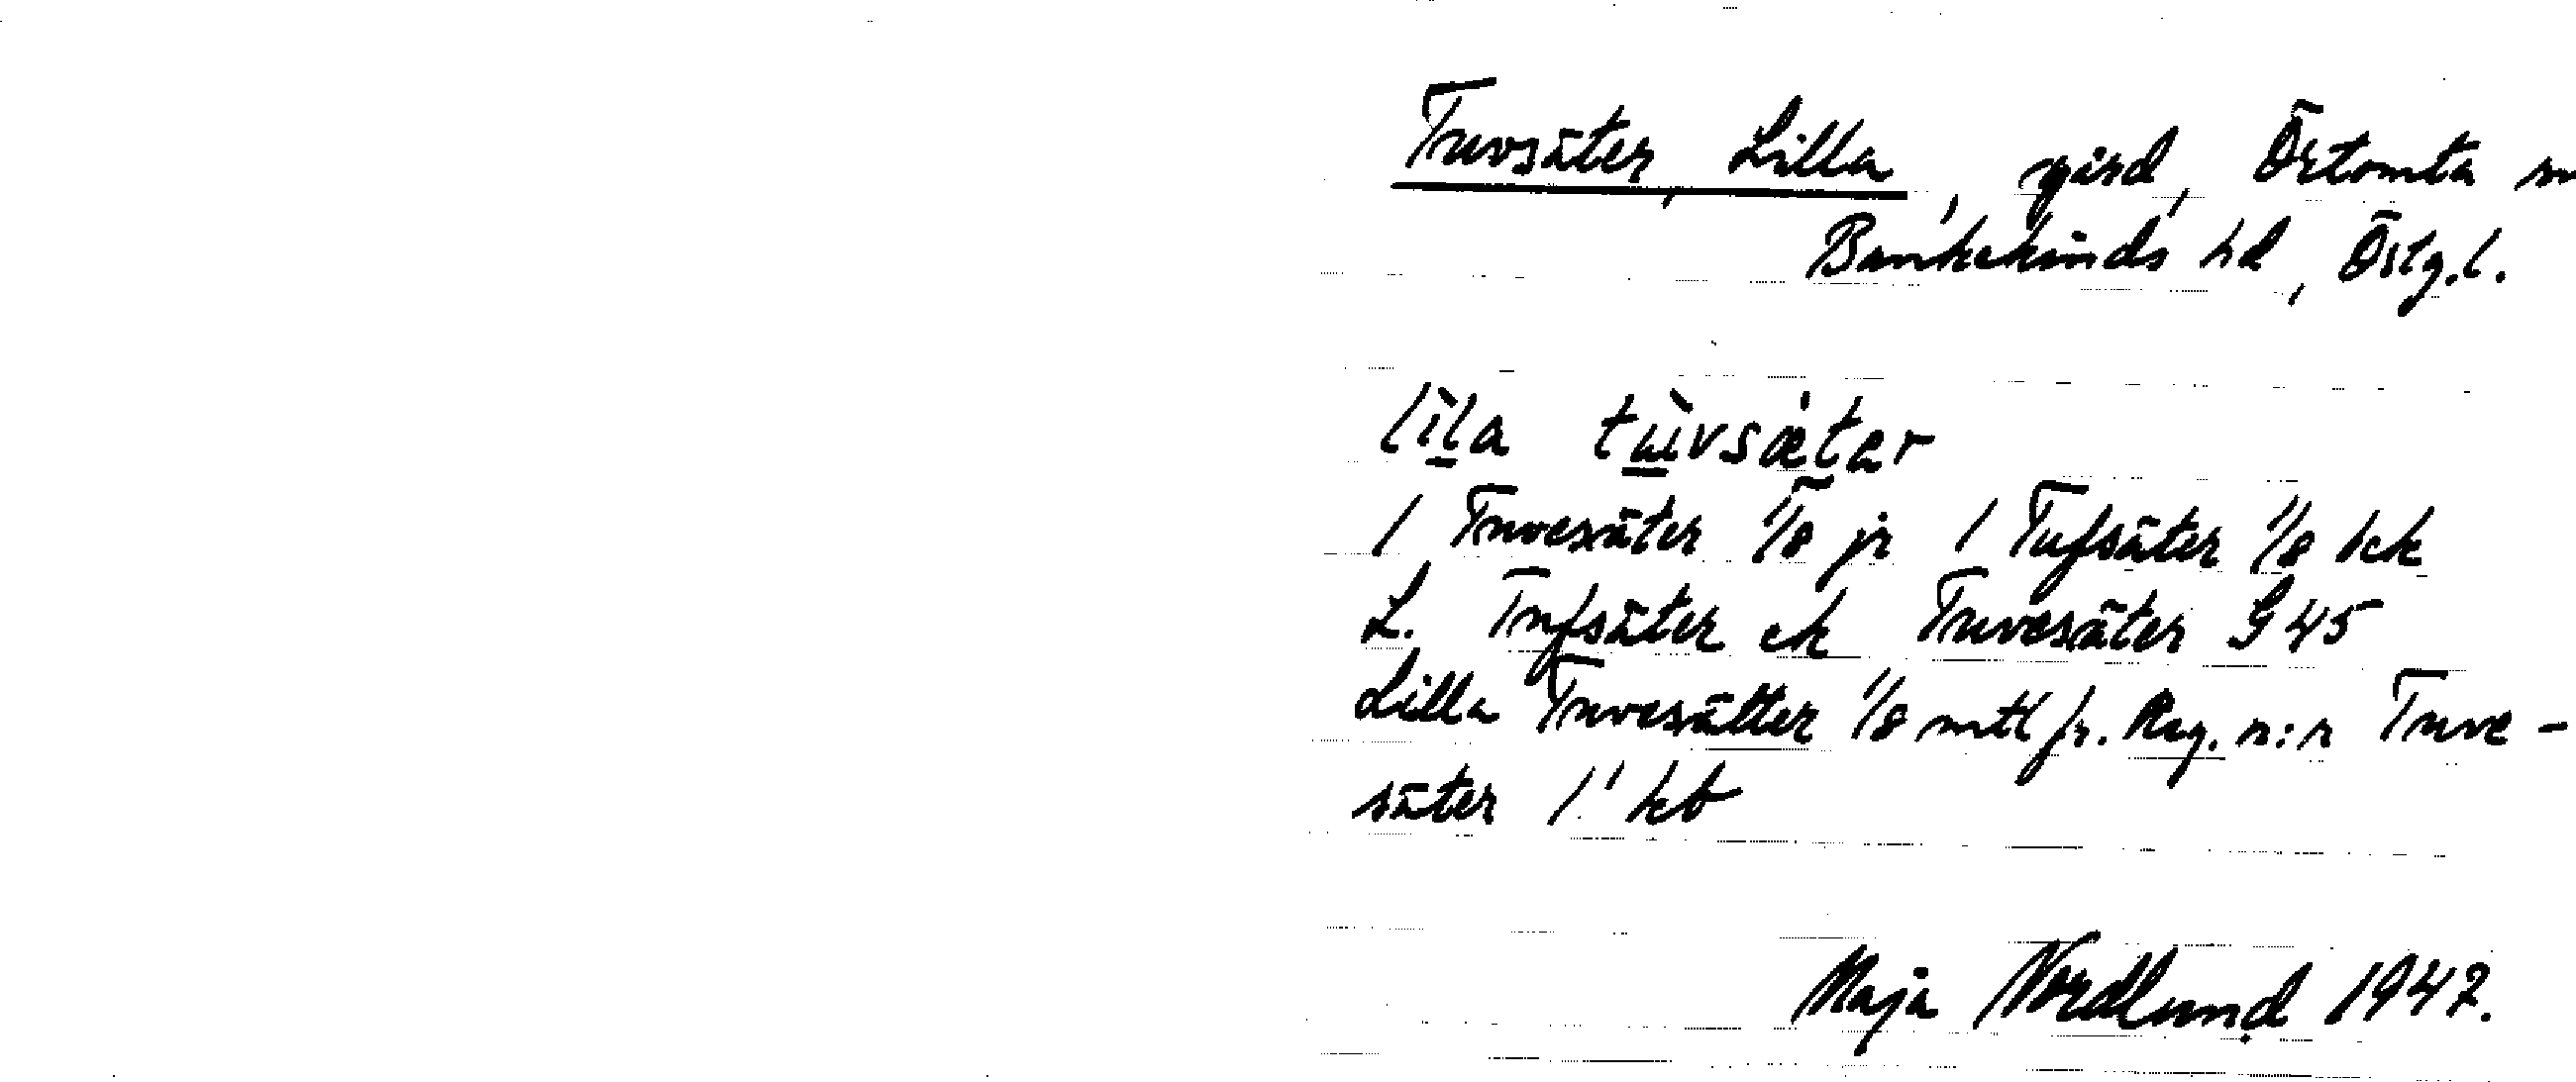 Tuvsäter, Lilla, gård, Örtomta
Bankekinds hd, Östg.l.
lìla tùvsæter
1 Tuvesäter 1/8 jr 1 Tufsäter 1/8 kk
L. Tufsäter ek Tuvesäter G 45
Lilla Tuvesätter 1/8 mtl fr. Reg. n:r Tuve-
säter 1¹ kb
Maja Nordlund 1942.